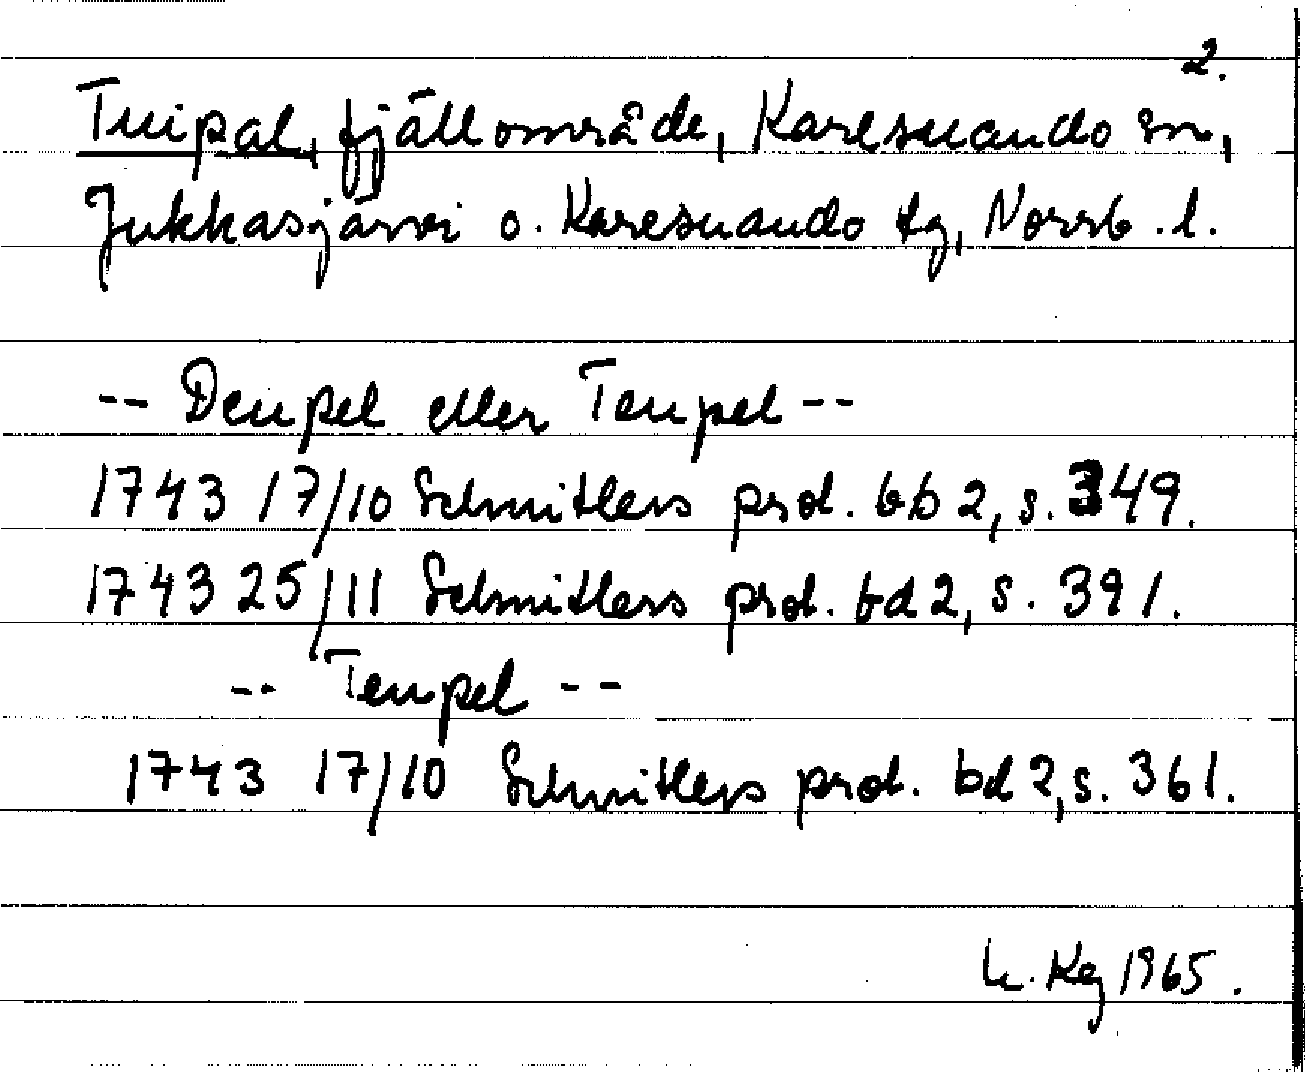 2.
Tuipal, fjällområde, Karesuando sn,
Jukkasjärvi o. Karesuando tg, Norrb. l.
-- Deupel eller Teupel --
1743 17/10 Schnitlers prot. bd 2, s. 349.
1743 25/11 Schnitlers prot. bd 2, s. 391.
-- Teupel --
1743 17/10 Schnitlers prot. bd 2, s. 361.
Kg 1965.